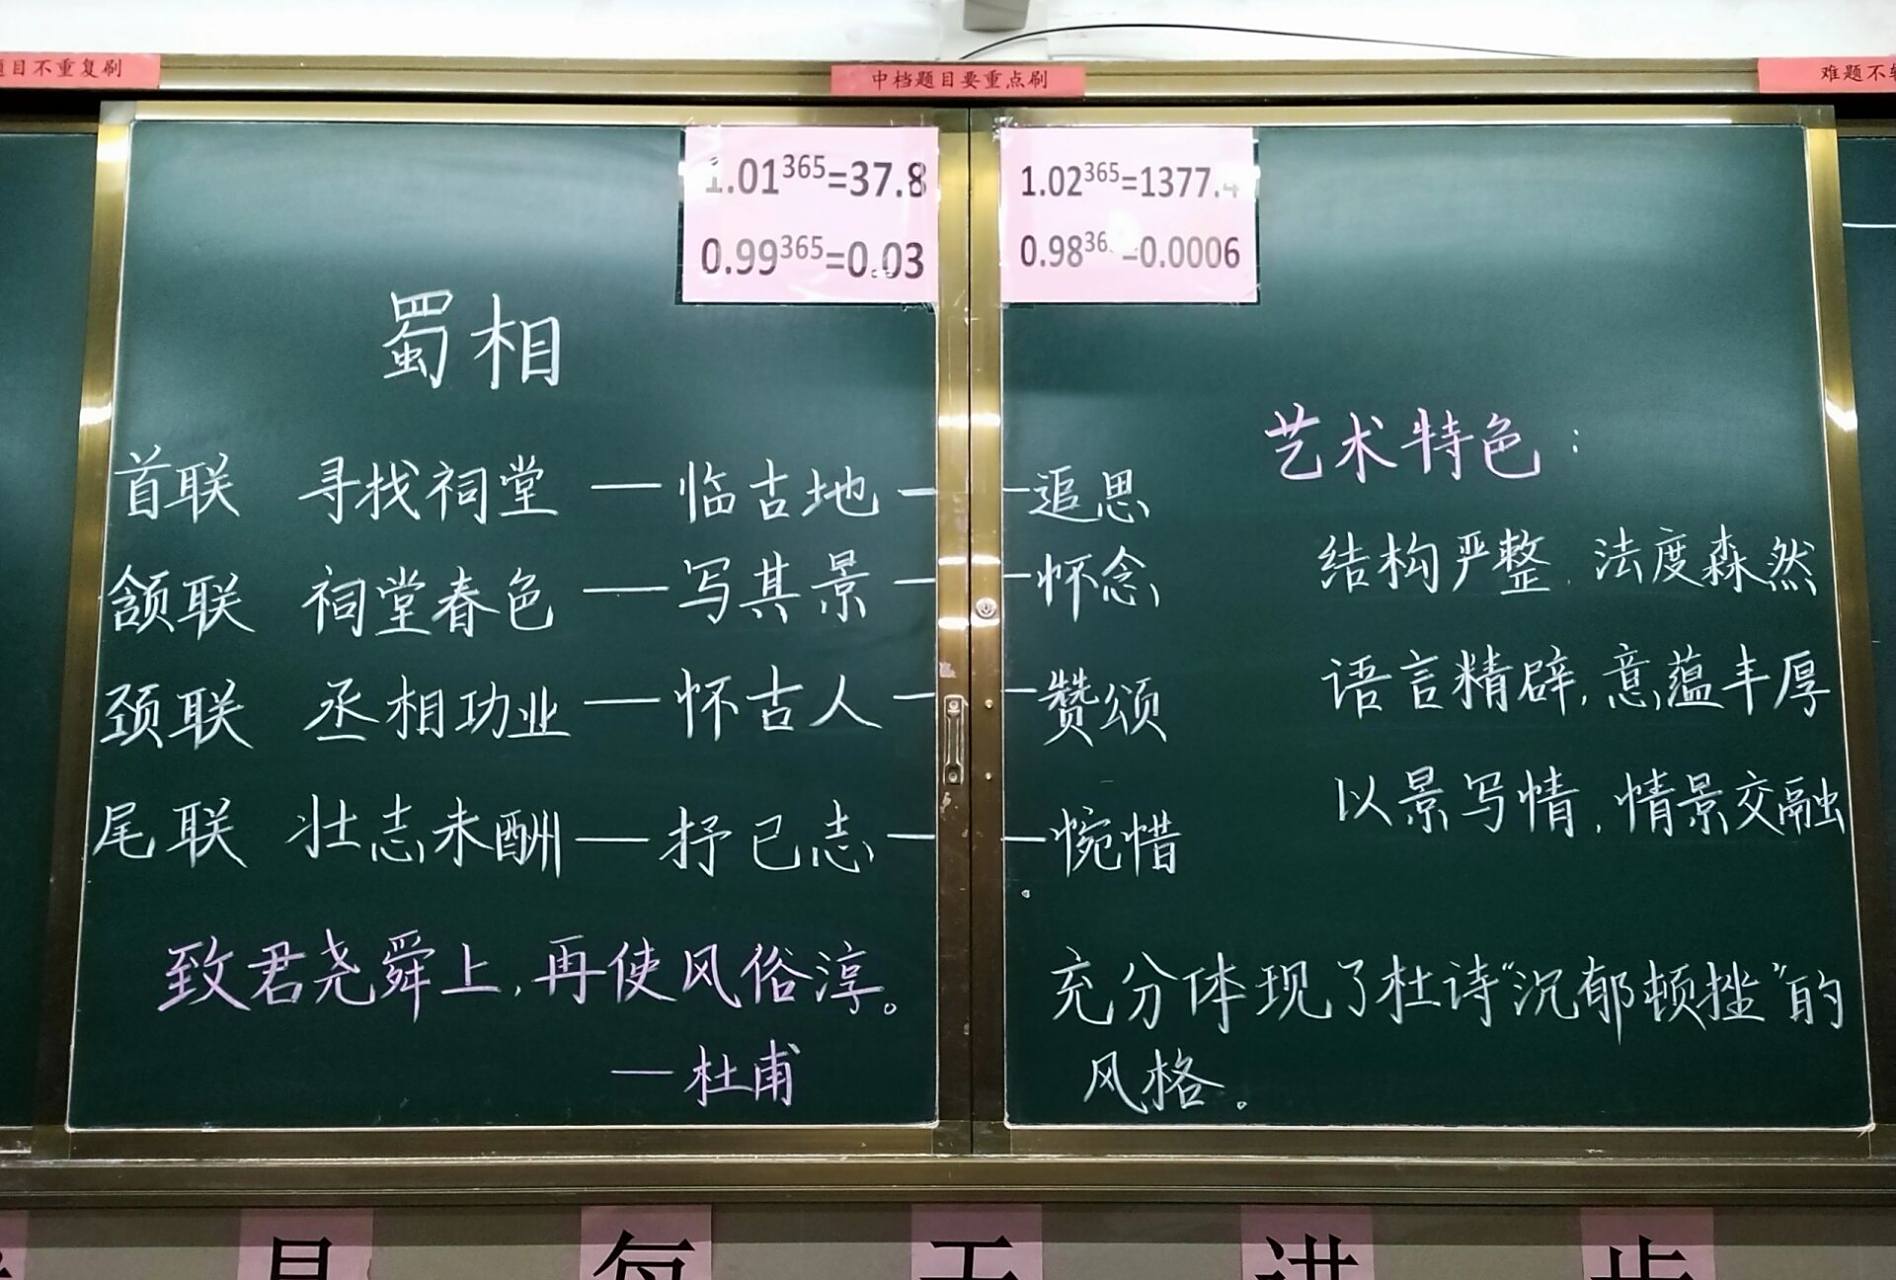 题目不重复刷
中档题目要重点刷
难题不
1.01³⁶⁵=37.8
0.99³⁶⁵=0.03
1.02³⁶⁵=1377.4
0.98³⁶⁵=0.0006
蜀相
首联 寻找祠堂 — 临古地 — — 追思
颔联 祠堂春色 — 写其景 — — 怀念
颈联 丞相功业 — 怀古人 — — 赞颂
尾联 壮志未酬 — 抒己志 — — 惋惜
致君尧舜上,再使风俗淳。
— 杜甫
艺术特色:
结构严整,法度森然
语言精辟,意蕴丰厚
以景写情,情景交融
充分体现了杜诗“沉郁顿挫”的
风格。
是每天进步